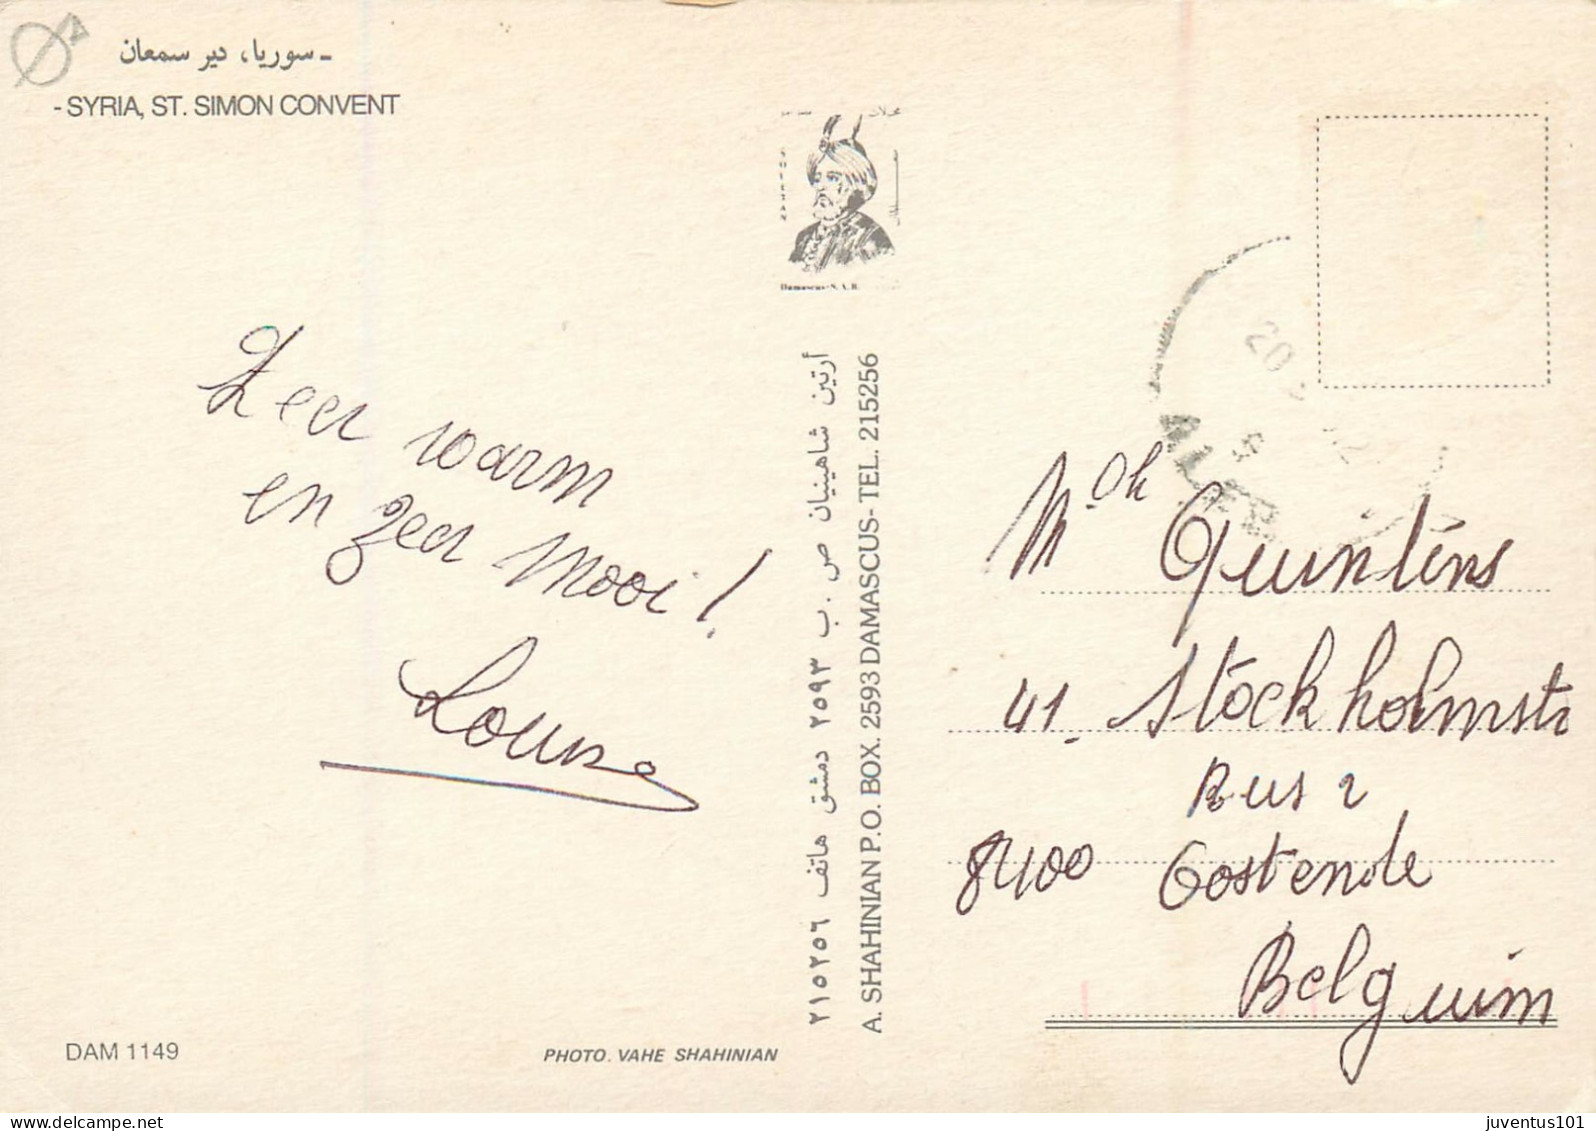 - سوريا، دير سمعان
- SYRIA, ST. SIMON CONVENT
SULTAN
Damascus-S.A.R.
Zeer warm
en zeer mooi!
Louise
أرتين شاهينيان ص . ب ٢٥٩٣ دمشق هاتف ٢١٥٢٥٦
A. SHAHINIAN P.O. BOX. 2593 DAMASCUS- TEL. 215256
20
ALEP
Quintens
41. Stockholmstr
Bus 2
8400 Oostende
Belguim
DAM 1149
PHOTO. VAHE SHAHINIAN
juventus101